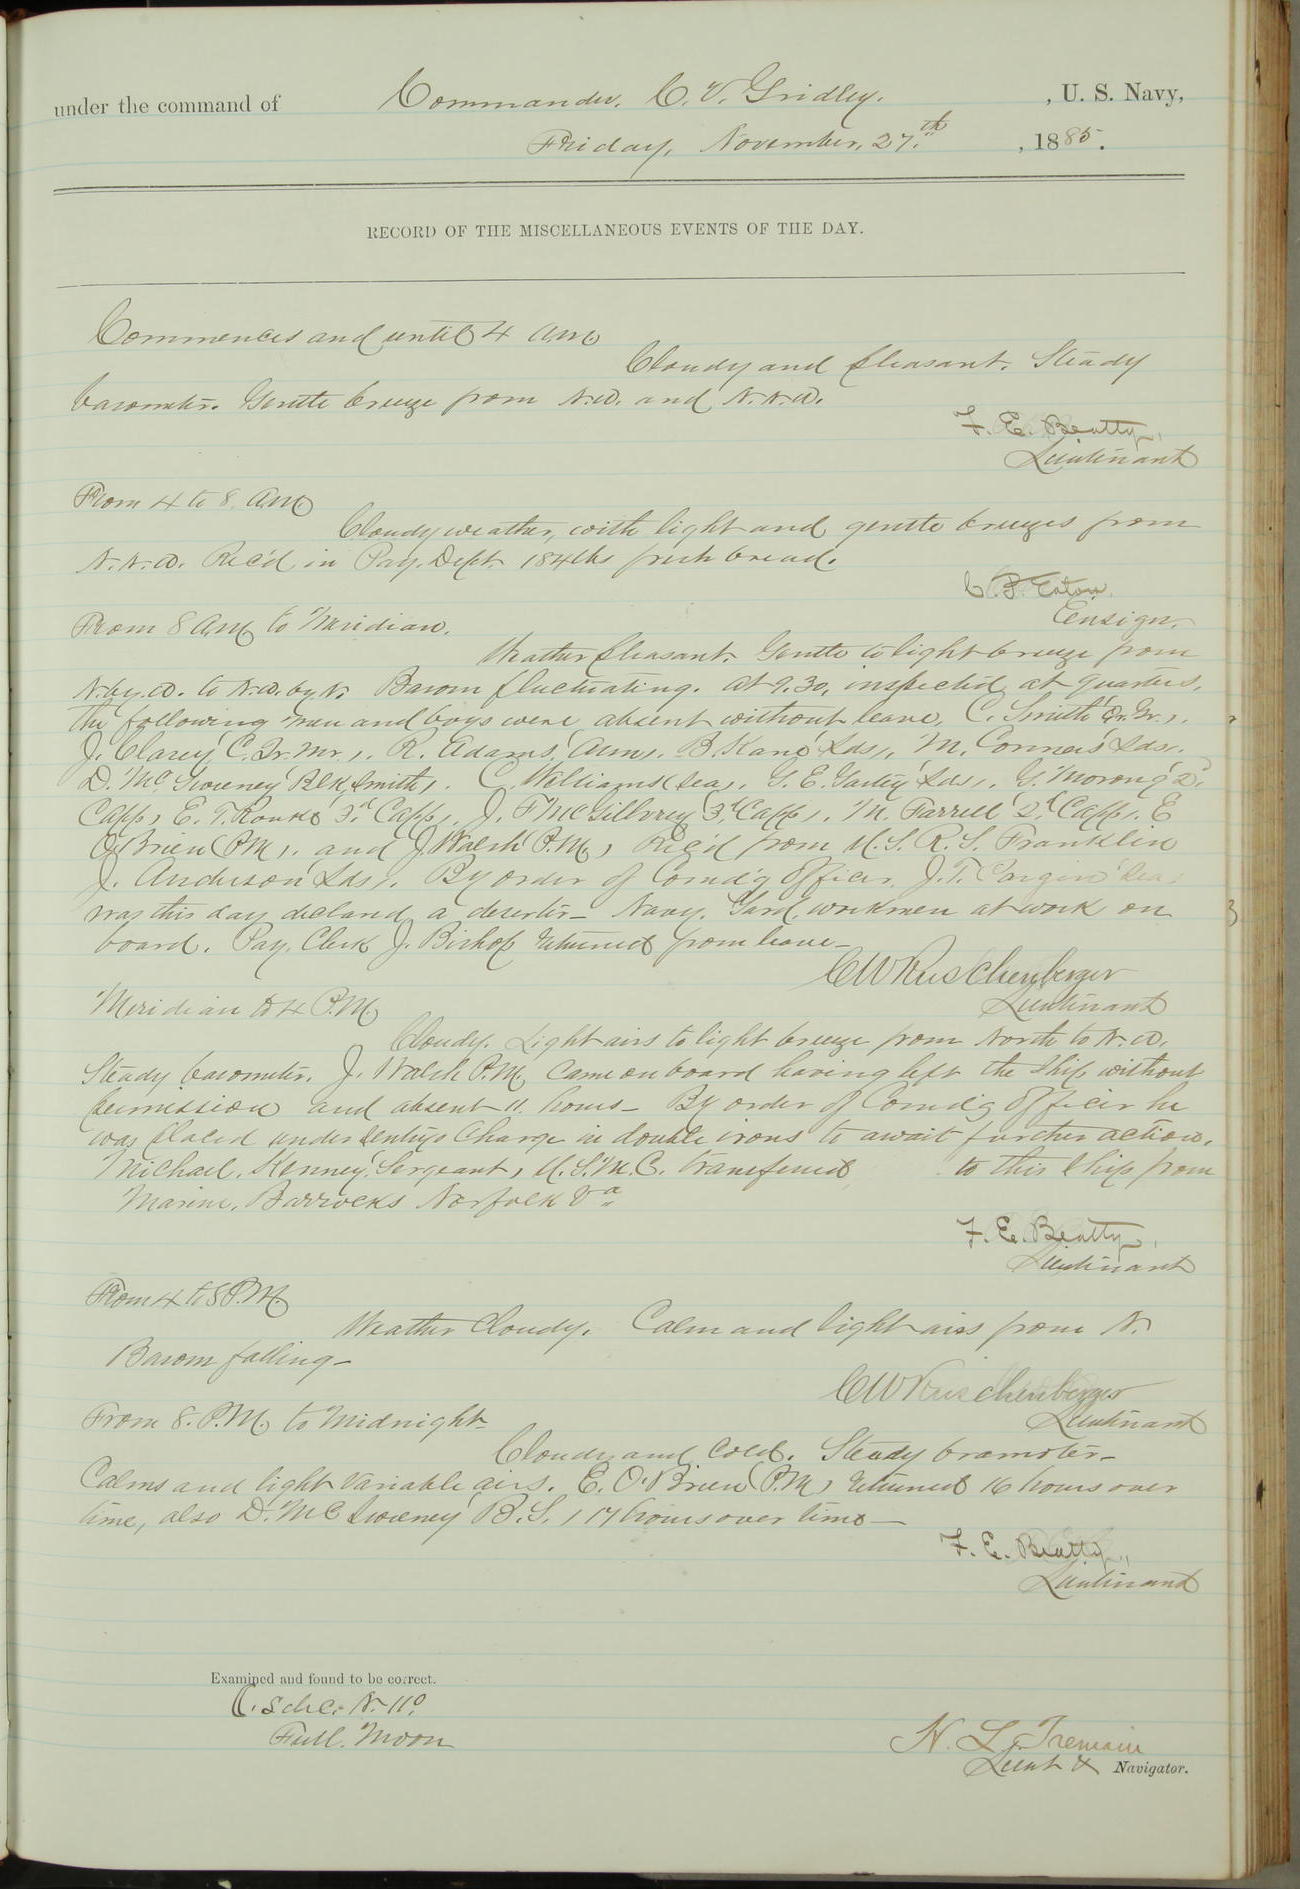 under the command of Commander. C. V. Gridley. , U. S. Navy,
Friday, November, 27.th , 1885.
RECORD OF THE MISCELLANEOUS EVENTS OF THE DAY.
Commences and until 4 a.m.
Cloudy and pleasant. Steady
barometer. Gentle breeze from N.W. and N.N.W.
F. E. Beatty,
Lieutenant
From 4 to 8. A.M.
Cloudy weather, with light and gentle breezes from
N.N.W. Rec'd in Pay. Dept. 184 lbs fresh bread.
C. P. Eaton
Ensign.
From 8 A.M. to Meridian.
Weather pleasant. Gentle to light breeze from
N. by. W. to N.W. by N. Barom fluctuating. At 9.30, inspected at quarters,
the following men and boys were absent without leave, C. Smith
J. Clarey, R. Adams, B. Kane Lds, M. Conners Lds,
D. McSweeney Blk. Smith, C. Williams Sea, G. E. Lds, G. Morong 2d
Capp, E. T. Rouke 3d Capp, J. F. McGillvrey 3d Capp, M. Farrell 2d Capp, E
O'Brien (P.M), and J. Walsh P.M, Rec'd from U.S.R.S. Franklin
J. Anderson Lds. By order of Comd'g Officer, J. T. Sea
was this day declared a deserter_ Navy. Yard, workmen at work on
board. Pay, Clerk J. Bishop returned from leave_
C W Ruschenberger
Lieutenant
Meridian to 4 P.M.
Cloudy. Light airs to light breeze from North to N.W.
Steady barometer. J. Walsh P.M. came on board having left the ship without
permission and absent 11. hours_ By order of Comd'g Officer he
was placed under Sentrys Charge in double irons to await further action.
Michael. Kenney, Sergeant, U.S.M.C. transferred to this Ship from
Marine, Barrocks Norfolk Va
F. E. Beatty,
Lieutenant
From 4 to 8 P.M.
Weather Cloudy. Calm and light airs from N.
Barom falling_
C W Ruschenberger
Lieutenant
From 8. P.M. to Midnight_
Cloudy and cold. Steady
Calms and light variable airs. E. O'Brien (P.M) returned 16 hours over
time, also D. McSweeney B.S. 17 hours over time_
F. E. Beatty,
Lieutenant
Examined and found to be correct.
N. 110
Full. Moon
H. L. Tremain
Lieut & Navigator.